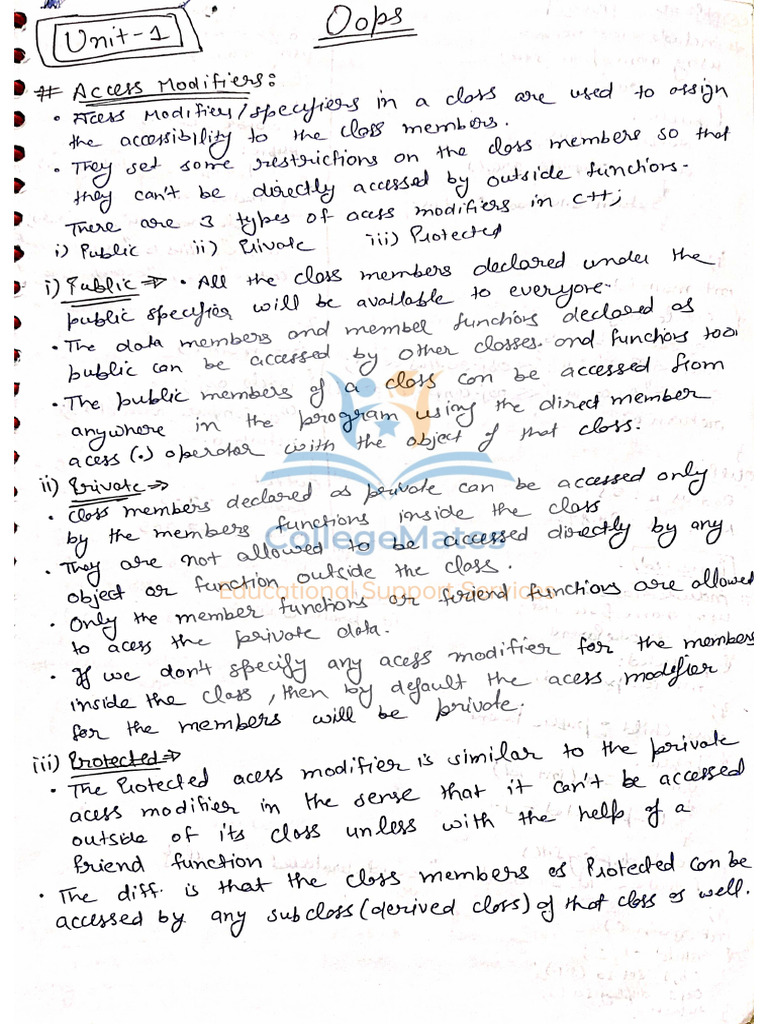 Unit-1
Oops
# Access Modifiers:
• Acess Modifiers/specifiers in a class are used to assign
the accessibility to the class members.
• They set some restrictions on the class members so that
they can't be directly accessed by outside functions.
There are 3 types of acess modifiers in C++;
i) Public ii) Private iii) Protected
i) Public ⇒ • All the class members declared under the
public specifier will be available to everyone.
• The data members and member functions declared as
public can be accessed by other classes and functions too.
• The public members of a class can be accessed from
anywhere in the program using the direct member
acess (.) operator with the object of that class.
ii) Private ⇒
• Class members declared as private can be accessed only
by the members functions inside the class
CollegeMates
• They are not allowed to be accessed directly by any
object or function outside the class.
Educational Support Services
• Only the member functions or friend functions are allowed
to acess the private data.
• If we don't specify any acess modifier for the members
inside the class, then by default the acess modifier
for the members will be private.
iii) Protected ⇒
• The Protected acess modifier is similar to the private
acess modifier in the sense that it can't be accessed
outside of its class unless with the help of a
friend function
• The diff. is that the class members as Protected can be
accessed by any subclass (derived class) of that class as well.